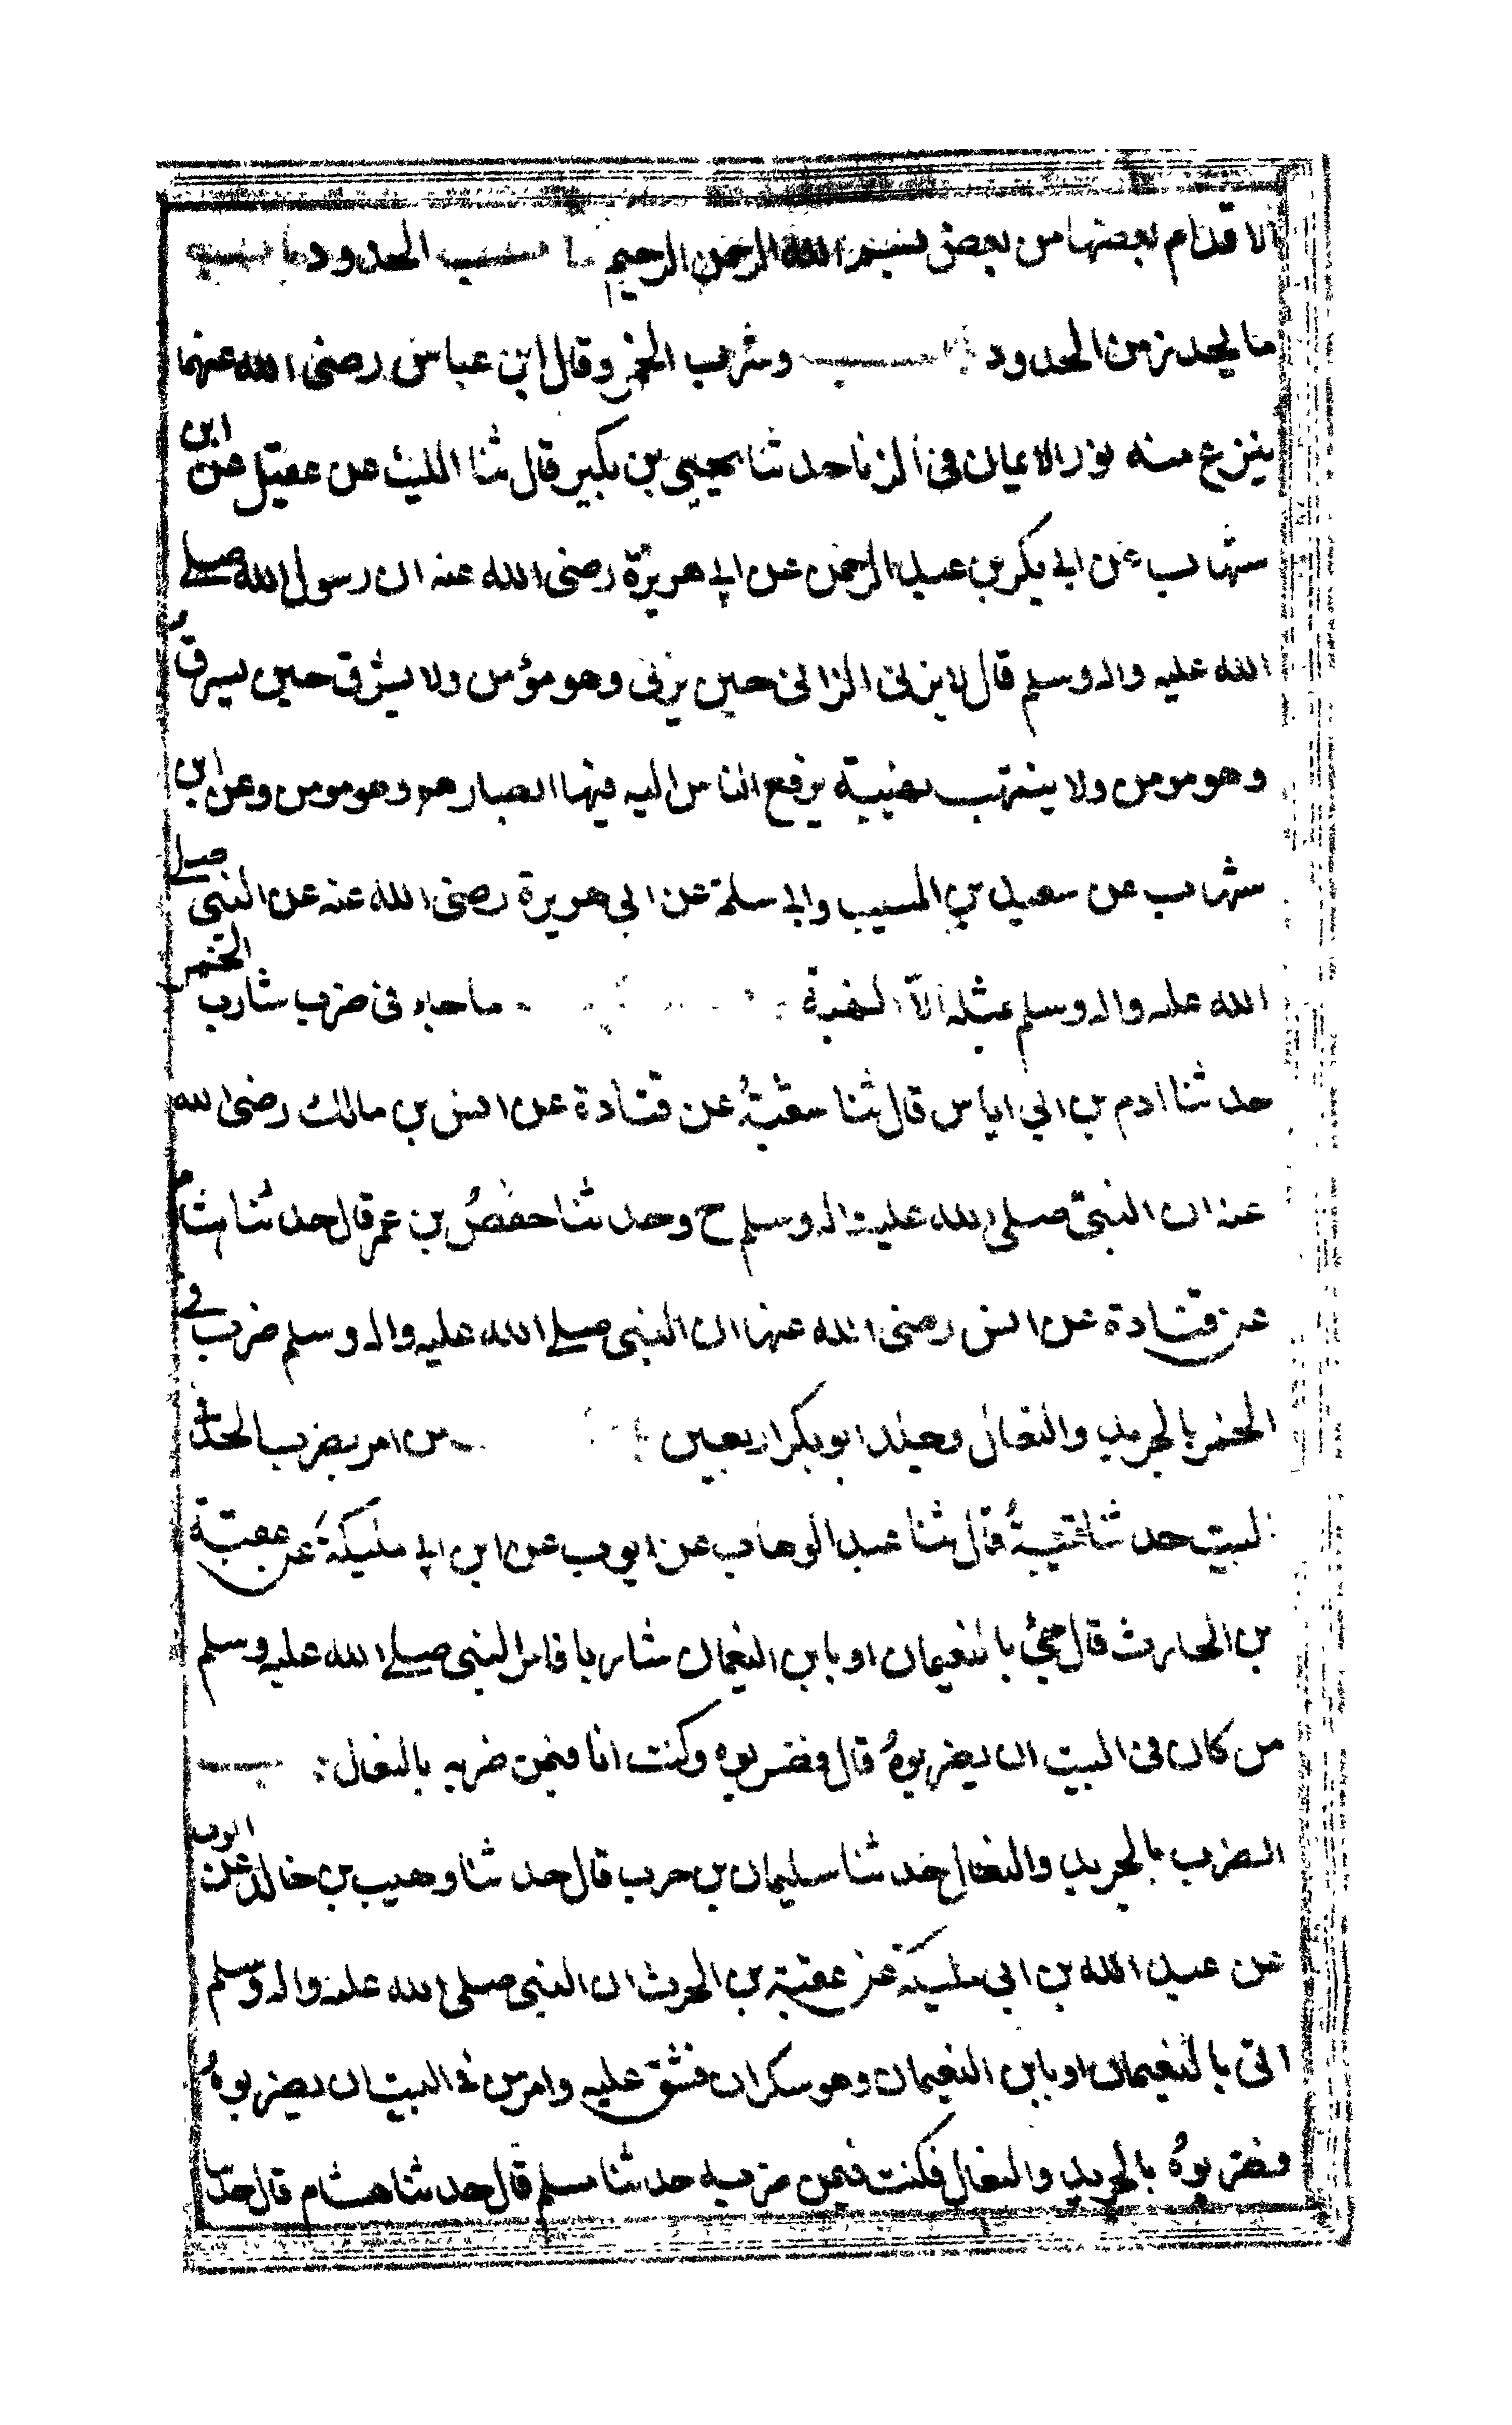 الاقدام بعضها من بعض بسم الله الرحمن الرحيم الحدود
ما يحذر من الحدود وشرب الخمر وقال ابن عباس رضى الله عنهما
ينزع منه نور الايمان فى الزنا حدثنا يحيى بن بكير قال ثنا الليث عن عقيل عن ابن
شهاب عن ابى بكر بن عبد الرحمن عن ابى هريرة رضى الله عنه ان رسول الله صلے
الله عليه واله وسلم قال لا يزنى الزانى حين يزنى وهو مؤمن ولا يسرق حين يسرق
وهو مومن ولا ينتهب نهبة يرفع الناس اليه فيها ابصارهم وهو مومن وعن ابن
شهاب عن سعيد بن المسيب وابى سلمة عن ابى هريرة رضى الله عنه عن النبى صلے
الله عليه واله وسلم بمثله الا النهبة ما جاء فى ضرب شارب الخمر
حدثنا ادم بن ابى اياس قال ثنا شعبة عن قتادة عن انس بن مالك رضى الله
عنه ان النبى صلى الله عليه واله وسلم ح وحدثنا حفص بن عمر قال حدثنا هشام
عن قتادة عن انس رضى الله عنه ان النبى صلے الله عليه واله وسلم ضرب فى
الخمر بالجريد والنعال وجلد ابو بكر اربعين من امر بضرب الحد فى
البيت حدثنا قتيبة قال ثنا عبد الوهاب عن ايوب عن ابن ابى مليكة عن عقبة
بن الحارث قال جئ بالنعيمان او بابن النعيمان شاربا فامر النبى صلے الله عليه وسلم
من كان فى البيت ان يضربوه قال فضربوه وكنت انا فيمن ضربه بالنعال
الضرب بالجريد والنعال حدثنا سليمان بن حرب قال حدثنا وهيب بن خالد عن ايوب
عن عبد الله بن ابى مليكة عن عقبة بن الحرث ان النبى صلى الله عليه واله وسلم
اتى بالنعيمان او بابن النعيمان وهو سكران فشق عليه وامر من فى البيت ان يضربوه
فضربوه بالجريد والنعال فكنت فيمن ضربه حدثنا مسلم قال حدثنا هشام قال حدثنا